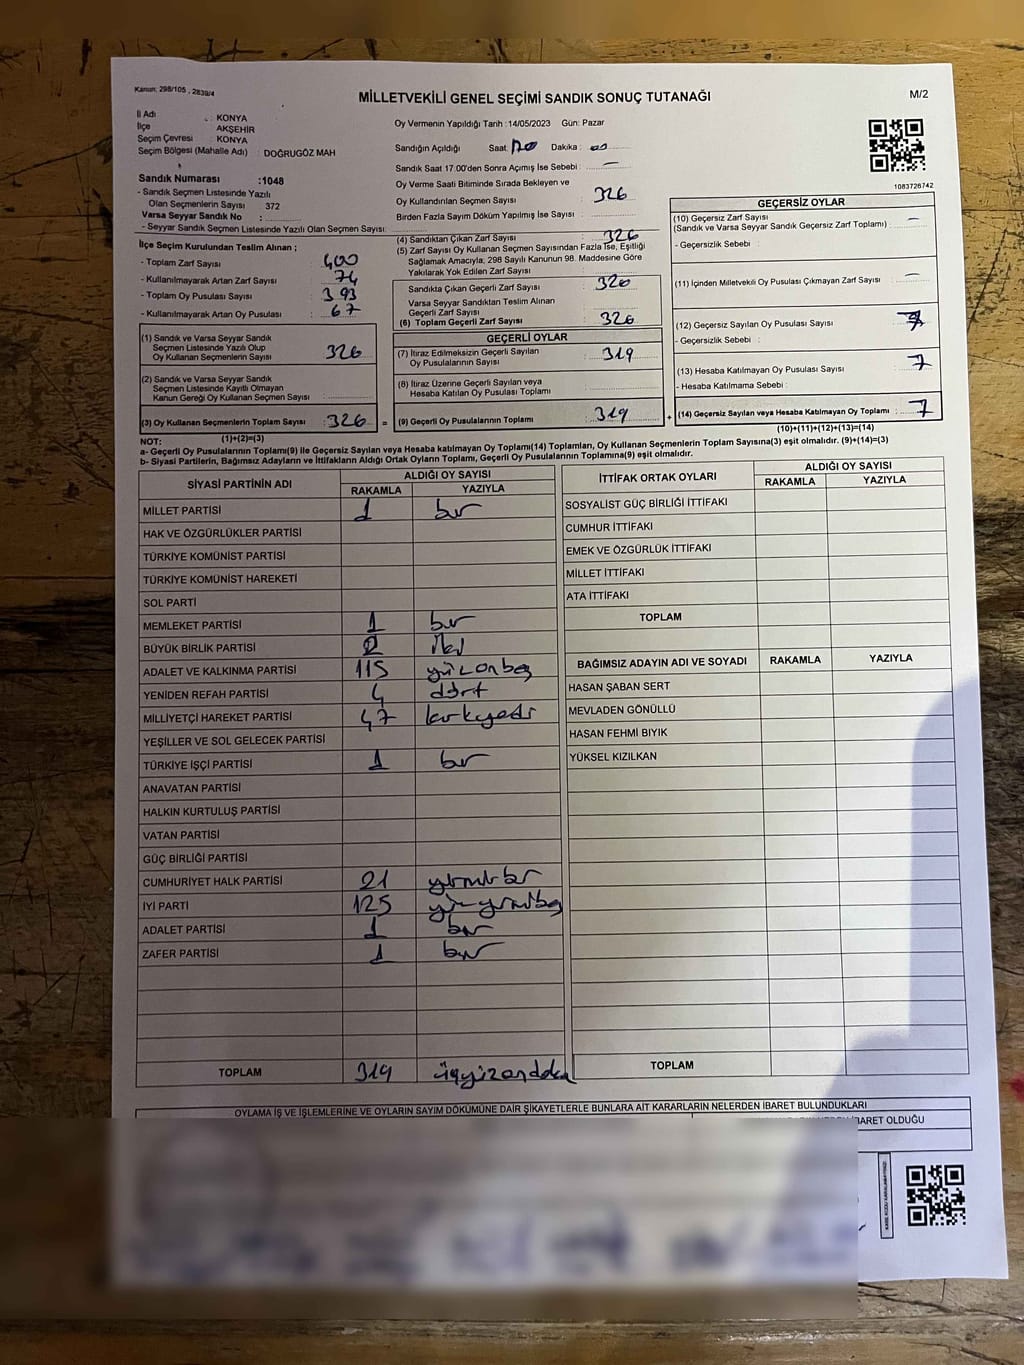 Kanun: 298/105 , 2839/4
MİLLETVEKİLİ GENEL SEÇİMİ SANDIK SONUÇ TUTANAĞI
M/2
İl Adı : KONYA
İlçe AKŞEHİR
Seçim Çevresi KONYA
Seçim Bölgesi (Mahalle Adı) : DOĞRUGÖZ MAH
Sandık Numarası :1048
- Sandık Seçmen Listesinde Yazılı
Olan Seçmenlerin Sayısı 372
Varsa Seyyar Sandık No :
- Seyyar Sandık Seçmen Listesinde Yazılı Olan Seçmen Sayısı:
Oy Vermenin Yapıldığı Tarih :14/05/2023 Gün: Pazar
Sandığın Açıldığı Saat: Dakika :
Sandık Saat 17:00'den Sonra Açımış İse Sebebi : —
Oy Verme Saati Bitiminde Sırada Bekleyen ve
Oy Kullandırılan Seçmen Sayısı : 326
Birden Fazla Sayım Döküm Yapılmış İse Sayısı :
1083726742
İlçe Seçim Kurulundan Teslim Alınan ;
- Toplam Zarf Sayısı : 400
- Kullanılmayarak Artan Zarf Sayısı : 74
- Toplam Oy Pusulası Sayısı : 393
- Kullanılmayarak Artan Oy Pusulası : 67
(1) Sandık ve Varsa Seyyar Sandık
Seçmen Listesinde Yazılı Olup
Oy Kullanan Seçmenlerin Sayısı : 326
(2) Sandık ve Varsa Seyyar Sandık
Seçmen Listesinde Kayıtlı Olmayan
Kanun Gereği Oy Kullanan Seçmen Sayısı :
(3) Oy Kullanan Seçmenlerin Toplam Sayısı : 326 =
(1)+(2)=(3)
(4) Sandıktan Çıkan Zarf Sayısı : 326
(5) Zarf Sayısı Oy Kullanan Seçmen Sayısından Fazla İse, Eşitliği
Sağlamak Amacıyla, 298 Sayılı Kanunun 98. Maddesine Göre
Yakılarak Yok Edilen Zarf Sayısı :
Sandıkta Çıkan Geçerli Zarf Sayısı : 326
Varsa Seyyar Sandıktan Teslim Alınan
Geçerli Zarf Sayısı :
(6) Toplam Geçerli Zarf Sayısı : 326
GEÇERLİ OYLAR
(7) İtiraz Edilmeksizin Geçerli Sayılan
Oy Pusulalarının Sayısı : 319
(8) İtiraz Üzerine Geçerli Sayılan veya
Hesaba Katılan Oy Pusulası Toplamı :
(9) Geçerli Oy Pusulalarının Toplamı : 319 +
GEÇERSİZ OYLAR
(10) Geçersiz Zarf Sayısı : —
(Sandık ve Varsa Seyyar Sandık Geçersiz Zarf Toplamı)
- Geçersizlik Sebebi :
(11) İçinden Milletvekili Oy Pusulası Çıkmayan Zarf Sayısı : —
(12) Geçersiz Sayılan Oy Pusulası Sayısı :
- Geçersizlik Sebebi :
(13) Hesaba Katılmayan Oy Pusulası Sayısı : 7
- Hesaba Katılmama Sebebi :
(14) Geçersiz Sayılan veya Hesaba Katılmayan Oy Toplamı : 7
(10)+(11)+(12)+(13)=(14)
NOT:
a- Geçerli Oy Pusulalarının Toplamı(9) ile Geçersiz Sayılan veya Hesaba katılmayan Oy Toplamı(14) Toplamları, Oy Kullanan Seçmenlerin Toplam Sayısına(3) eşit olmalıdır. (9)+(14)=(3)
b- Siyasi Partilerin, Bağımsız Adayların ve İttifakların Aldığı Ortak Oyların Toplamı, Geçerli Oy Pusulalarının Toplamına(9) eşit olmalıdır.
SİYASİ PARTİNİN ADI ALDIĞI OY SAYISI
RAKAMLA YAZIYLA
MİLLET PARTİSİ 1 bir
HAK VE ÖZGÜRLÜKLER PARTİSİ
TÜRKİYE KOMÜNİST PARTİSİ
TÜRKİYE KOMÜNİST HAREKETİ
SOL PARTİ
MEMLEKET PARTİSİ 1 bir
BÜYÜK BİRLİK PARTİSİ 2 iki
ADALET VE KALKINMA PARTİSİ 115 yüzonbeş
YENİDEN REFAH PARTİSİ 4 dört
MİLLİYETÇİ HAREKET PARTİSİ 47 kırkyedi
YEŞİLLER VE SOL GELECEK PARTİSİ
TÜRKİYE İŞÇİ PARTİSİ 1 bir
ANAVATAN PARTİSİ
HALKIN KURTULUŞ PARTİSİ
VATAN PARTİSİ
GÜÇ BİRLİĞİ PARTİSİ
CUMHURİYET HALK PARTİSİ 21 yirmibir
İYİ PARTİ 125 yüzyirmibeş
ADALET PARTİSİ 1 bir
ZAFER PARTİSİ 1 bir
TOPLAM 319 üçyüzondokuz
İTTİFAK ORTAK OYLARI ALDIĞI OY SAYISI
RAKAMLA YAZIYLA
SOSYALİST GÜÇ BİRLİĞİ İTTİFAKI
CUMHUR İTTİFAKI
EMEK VE ÖZGÜRLÜK İTTİFAKI
MİLLET İTTİFAKI
ATA İTTİFAKI
TOPLAM
BAĞIMSIZ ADAYIN ADI VE SOYADI RAKAMLA YAZIYLA
HASAN ŞABAN SERT
MEVLADEN GÖNÜLLÜ
HASAN FEHMİ BIYIK
YÜKSEL KIZILKAN
TOPLAM
OYLAMA İŞ VE İŞLEMLERİNE VE OYLARIN SAYIM DÖKÜMÜNE DAİR ŞİKAYETLERLE BUNLARA AİT KARARLARIN NELERDEN İBARET BULUNDUKLARI
İBARET OLDUĞU